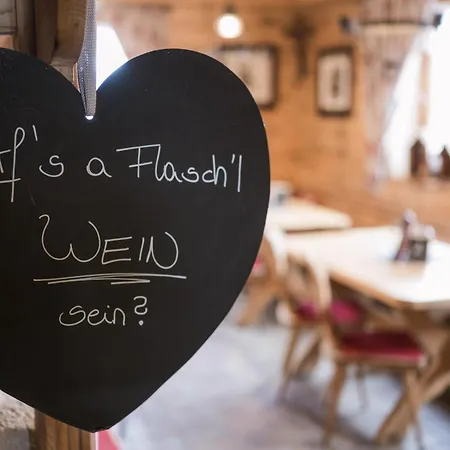 f's a Flasch'l
WEIN
sein?